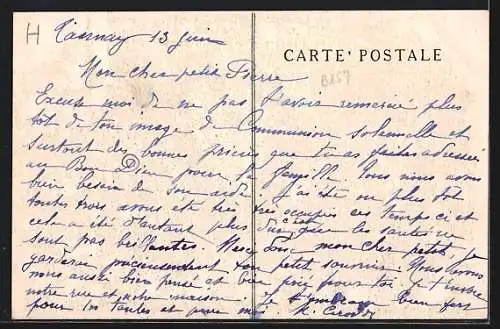 H
Tannay 13 Juin
CARTE POSTALE
Mon cher petit Pierre
B257
Excuse moi de ne pas t'avoir remercié plus
tôt de ton image de Communion solennelle et
surtout des bonnes prières que tu as faites adressées
au Bon Dieu pour la famille. Nous avons
bien besoin de son aide. j'ai été ou plus tôt
toutes trois avons été très occupées ces temps ci et
cela a été d'autant plus dur, que les santés ne
sont pas brillantes. Merci donc mon cher petit, je
garderai précieusement ton petit souvenir. Nous avons
nous aussi bien pensé et bien prié pour toi
notre rue et notre maison. Je t'embrasse bien fort
pour tes tantes et pour moi